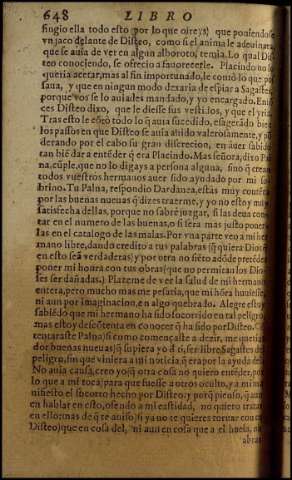 648 LIBRO
fingio ella todo esto por lo que oireys) que poniendose
vn jaco delante de Disteo, como si el anima le adeuinara
que se auia de ver en algun alboroto, temia. Lo qual Dis
teo conociendo, se ofrecio a fauorecerle. Placindo no lo
queria acetar, mas al fin importunado, le conto lo que pas
saua, y que en ningun modo dexaria de espiar a Sagastes,
porque vos se lo auiades mandado, y yo encargado. Enton
ces Disteo dixo, que le diesse sus vestidos, y que el yria.
Tras esto le cōtò todo lo q̄ auia sucedido, exageādo bien
los passos en que Disteo se auia auido valerosamente, y pō
derando por el cabo su gran discrecion, en auer sabido
tan biē dar a entēder q̄ era Placindo. Mas señora, dixo Pal
na, cūple, que no lo digays a persona alguna, sino q̄ crean
todos vuestros hermanos auer sido ayudado por mi so
brino. Tu Palna, respondio Dardanea, estàs muy contēta
por las buenas nueuas q̄ dizes traerme, y yo no estoy muy
satisfecha dellas, porque no sabrè juzgar, si las deua con
tar en el numero de las buenas, o si serà mas justo poner
las en el catalogo de las malas. Por vna parte veo a mi her
mano libre, dando credito a tus palabras (q̄ quiera Dios
en esto seā verdaderas) y por otra no siēto adōde precēde
poner mi honra con tus obras (que no permitan los Dio
ses ser dañadas.) Plazeme de ver la salud de mi hermano
entera, pero mucho mas me pesaria, que mi hōra huuiesse,
ni aun por imaginacion, en algo quebrado. Alegre estoy
sabiēdo que mi hermano ha sido socorrido en tal peligro,
mas estoy descōtenta en conocer q̄ ha sido por Disteo.
encararaste Palna) si como començaste a dezir, me
dor buenas nueuas(q̄ supiera yo d si, ser libre Sagastes del
peligro, sin que viniera a mi noticia q̄ era por la ayuda
No auia causa, creo yo(q̄ otra cosa no quiero entēder, por
lo que a mi toca) para que fuesse a otros oculto, y a mi ma
nifiesto el socorro hecho por Disteo: y porq̄ pienso, q̄ aun
en hablar en esto, ofendo a mi castidad, no quiero tratar
en ello(mas de q̄ te auiso) si ya no te quieres tornar con
Disteo) que en cosa del, ni aun en cosa que a el huela, no
abras